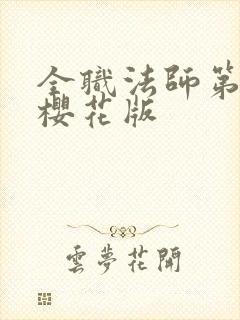 全職法師第
櫻花版
雲夢花開